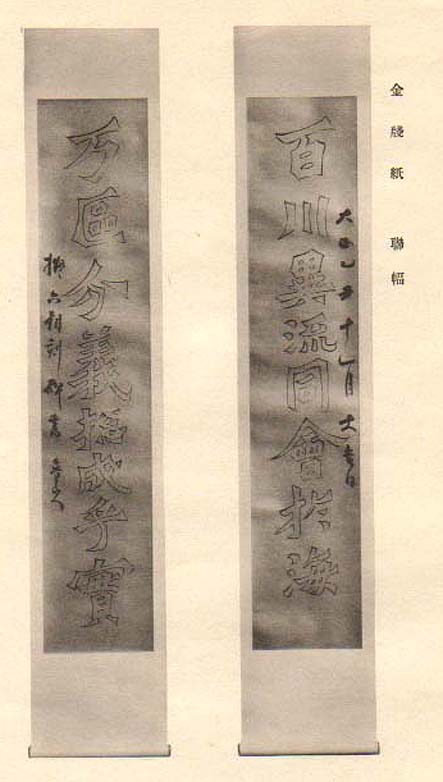 金牋紙　聯幅
百川異流同會於海
大正乙丑十一月大吉日
万區分義揔成乎實
擬六朝刻碑書